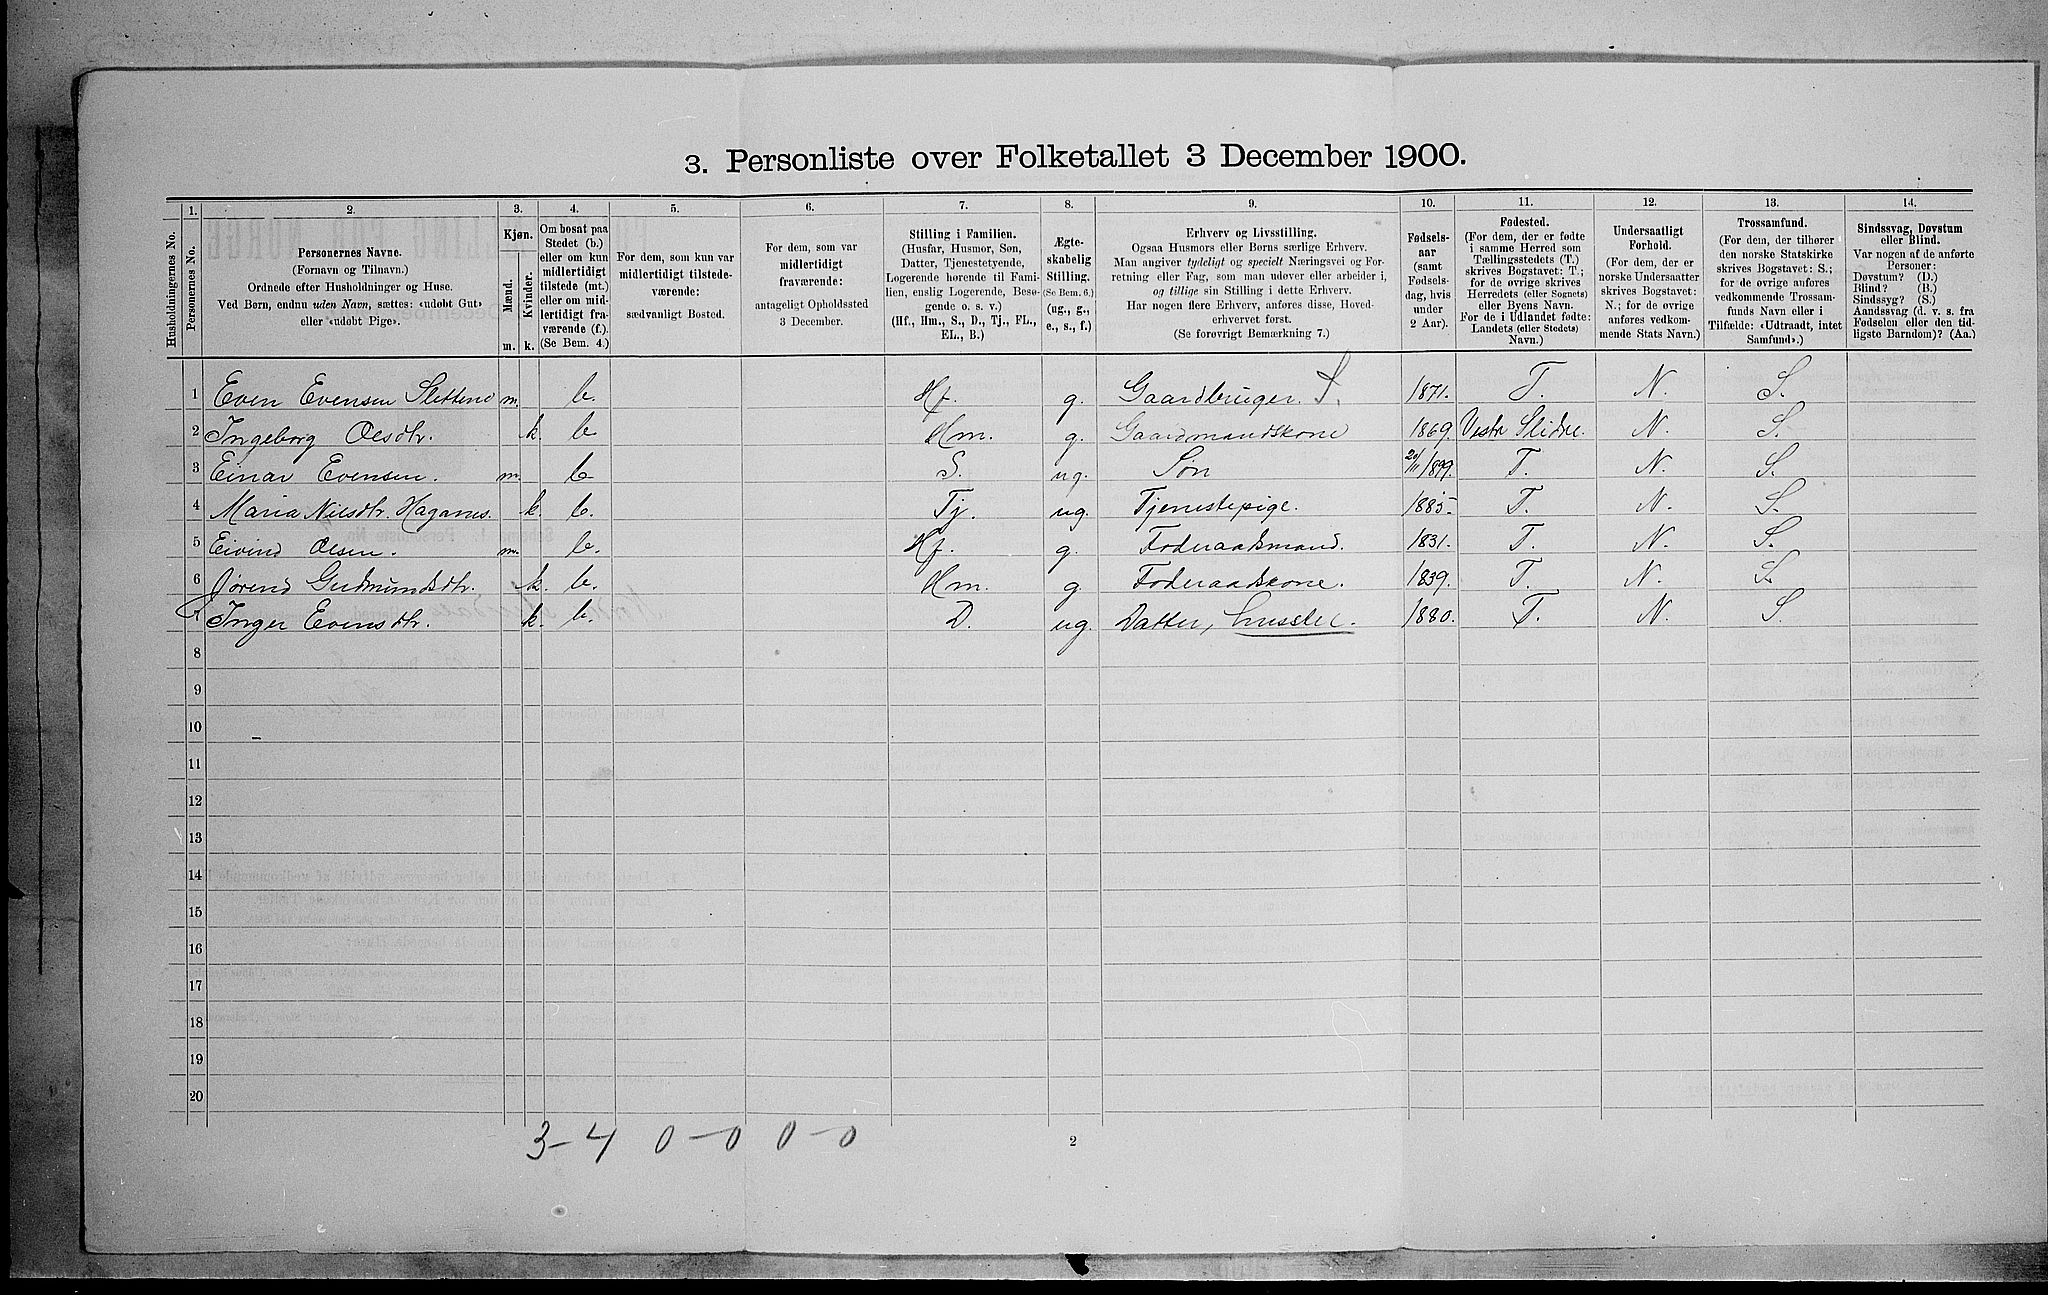 3. Personliste over Folketallet 3 December 1900.
1. 2. 3. 4. 5. 6. 7. 8. 9. 10. 11. 12. 13. 14.
Husholdningernes No.
Personernes No.
Personernes Navne.
(Fornavn og Tilnavn.)
Ordnede efter Husholdninger og Huse.
Ved Børn, endnu uden Navn, sættes: «udøbt Gut»
eller «udøbt Pige».
Kjøn.
Mænd.
Kvinder.
m. k.
Om bosat paa
Stedet (b.)
eller om kun
midlertidigt
tilstede (mt.)
eller om mid-
lertidigt fra-
værende (f.).
(Se Bem. 4.)
For dem, som kun var
midlertidigt tilstede-
værende:
sædvanligt Bosted.
For dem, som var
midlertidigt
fraværende:
antageligt Opholdssted
3 December.
Stilling i Familien.
(Husfar, Husmor, Søn,
Datter, Tjenestetyende,
Logerende hørende til Fami-
lien, enslig Logerende, Besø-
gende o. s. v.)
(Hf., Hm., S., D., Tj., FL.,
EL., B.)
Ægte-
skabelig
Stilling.
(Se Bem. 6.)
(ug., g.,
e., s., f.)
Erhverv og Livsstilling.
Ogsaa Husmors eller Børns særlige Erhverv.
Man angiver tydeligt og specielt Næringsvei og For-
retning eller Fag, som man udøver eller arbeider i,
og tillige sin Stilling i dette Erhverv.
Har nogen flere Erhverv, anføres disse, Hoved-
erhvervet først.
(Se forøvrigt Bemærkning 7.)
Fødsels-
aar
(samt
Fødsels-
dag, hvis
under
2 Aar).
Fødested.
(For dem, der er fødte
i samme Herred som
Tællingsstedets (T.)
skrives Bogstavet: T.;
for de øvrige skrives
Herredets (eller Sognets)
eller Byens Navn.
For de i Udlandet fødte:
Landets (eller Stedets)
Navn.)
Undersaatligt
Forhold.
(For dem, der er
norske Undersaatter
skrives Bogstavet:
N.; for de øvrige
anføres vedkom-
mende Stats Navn.)
Trossamfund.
(For dem, der tilhører
den norske Statskirke
skrives Bogstavet: S.;
for de øvrige anføres
vedkommende Trossam-
funds Navn eller i
Tilfælde: «Udtraadt, intet
Samfund».)
Sindssvag, Døvstum
eller Blind.
Var nogen af de anførte
Personer:
Døvstum? (D.)
Blind? (B.)
Sindssyg? (S.)
Aandssvag (d. v. s. fra
Fødselen eller den tid-
ligste Barndom)? (Aa.)
1 Even Evensen Slettene m. b. Hf. g. Gaardbruger. S. 1871. T. N. S.
2 Ingeborg Olsdtr. k. b Hm. g. Gaardmandskone 1869. Vestr Slidre. N. S.
3 Einar Evensen. m. b S. ug. Søn 20/11 1899. T. N. S.
4 Maria Nilsdtr. Haganes. k. b. Tj. ug. Tjenestepige. 1885. T. N. S.
5 Eivind Olsen. m. b. Hf. g. Føderaadsmand. 1831. T. N. S.
6 Jørend Gudmundsdtr. k. b. Hm. g. Føderaadskone. 1839. T. N. S.
7 Inger Evensdtr. k. b. D. ug. Datter, 1880. T. N. S.
8
9
10
11
12
13
14
15
16
17
18
19
20
3-4 0-0 0-0
2